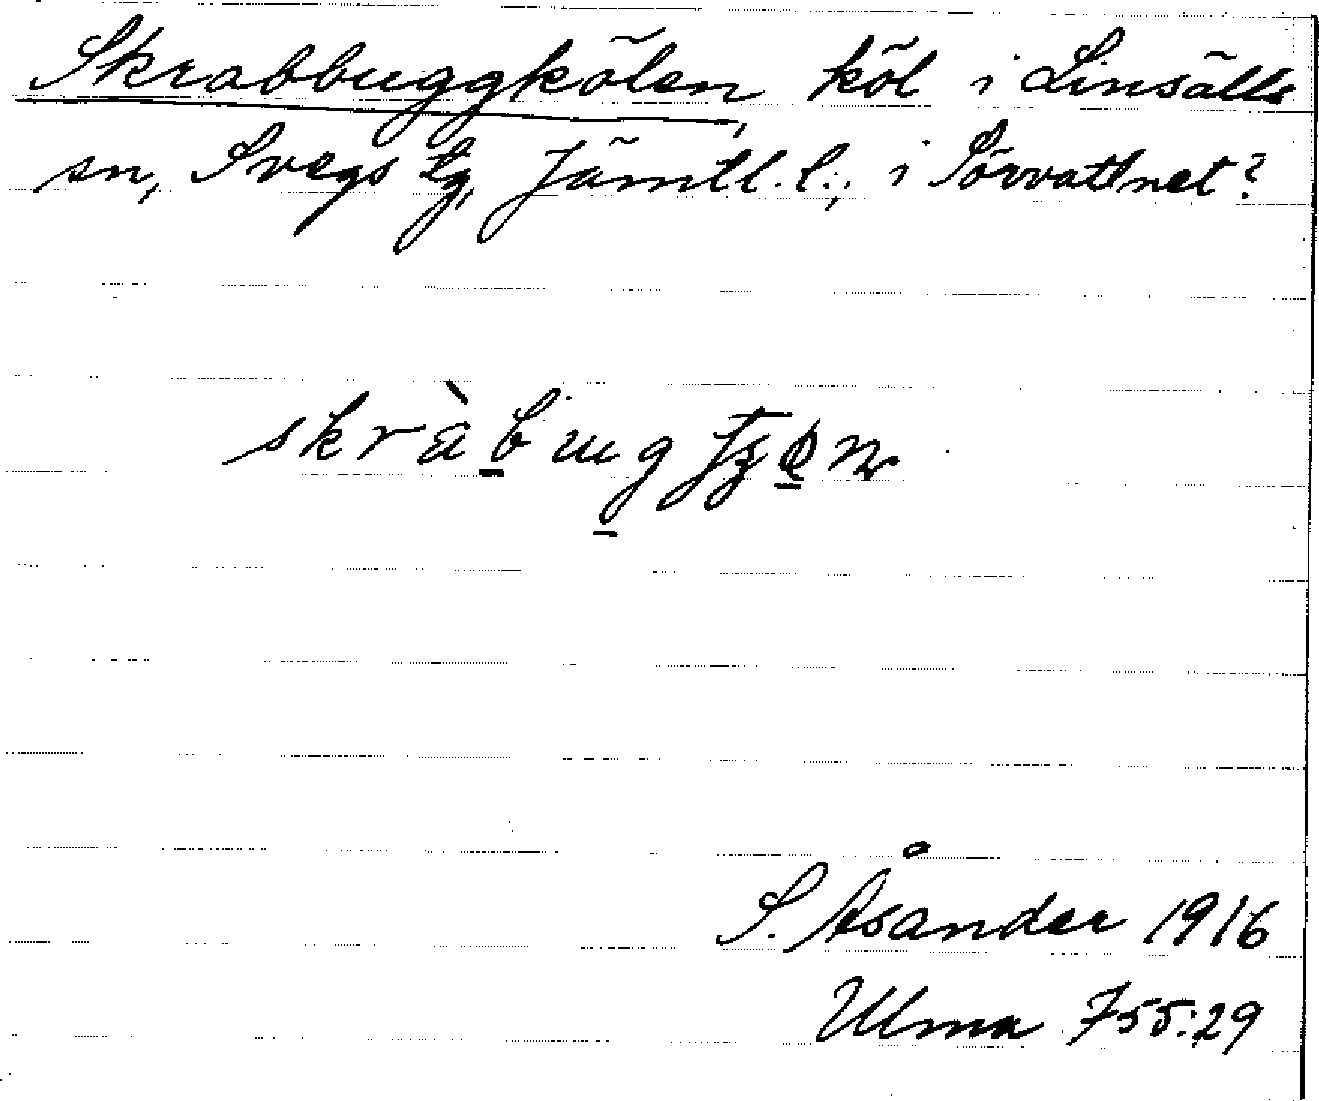 Skrabbuggkölen, köl i Linsälls
sn, Svegs tg, Jämtl. l., i Sörvattnet?
S. Åsander 1916
Ulma 755:29